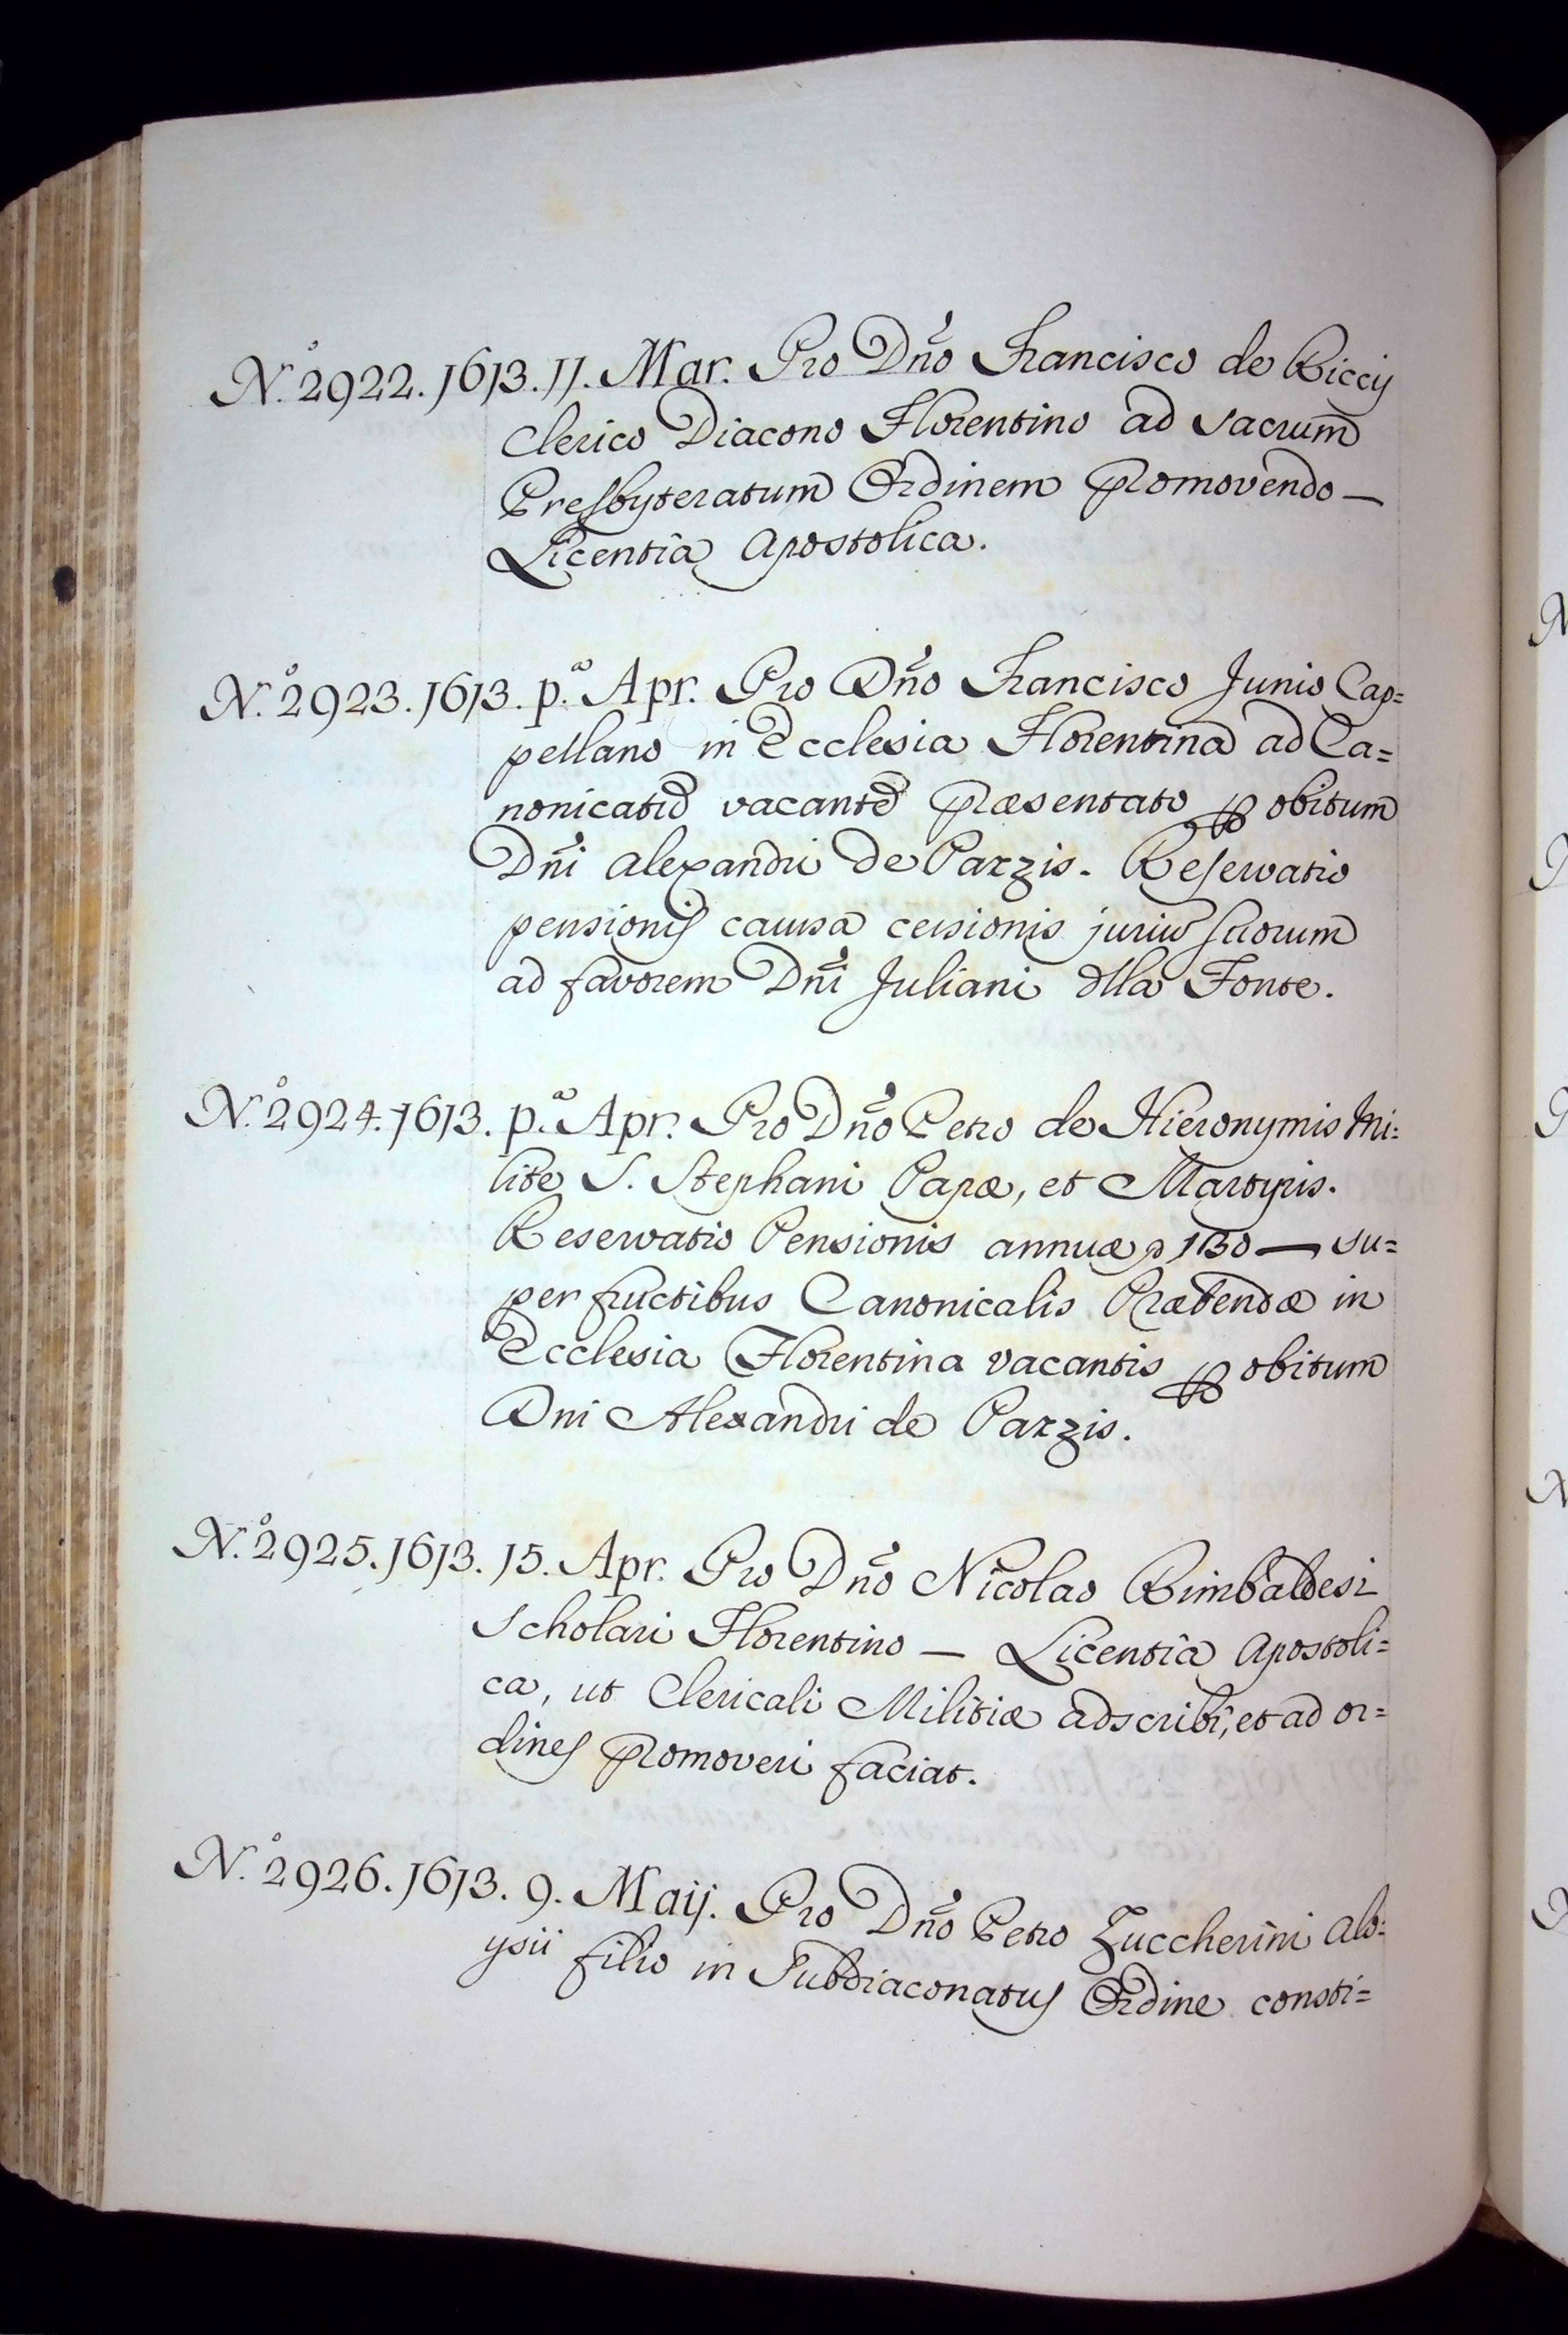 N.º 2922. 1613. 11. Mar. Pro Dño Francisco de Riccij
Clerico Diacono Florentino ad Sacrum
Presbyteratum Ordinem promovendo —
Licentia Apostolica.
N.º 2923. 1613. p.ª Apr. Pro Dño Francisco Junio Cap=
pellano in Ecclesia Florentina ad Ca=
nonicatū vacantē præsentato p obitum
Dñi Alexandri de Pazzis. Reservatio
pensionis causa cessionis jurium suorum
ad favorem Dñi Juliani dlla Fonte.
N.º 2924. 1613. p.ª Apr. Pro Dño Petro de Hieronymis Mi=
lite S. Stephani Papæ, et Martyris.
Reservatio Pensionis annuæ — su=
per fructibus Canonicalis Præbendæ in
Ecclesia Florentina vacantis p obitum
Dni Alexandri de Pazzis.
N.º 2925. 1613. 15. Apr. Pro Dño Nicolao Rimbaldesi
Scholari Florentino — Licentia Apostoli=
ca, ut Clericali Militiæ adscribi, et ad or=
dines promoveri faciat.
N.º 2926. 1613. 9. Maij. Pro Dño Petro Zuccherini Alo=
ysii filio in Subdiaconatus Ordine consti=